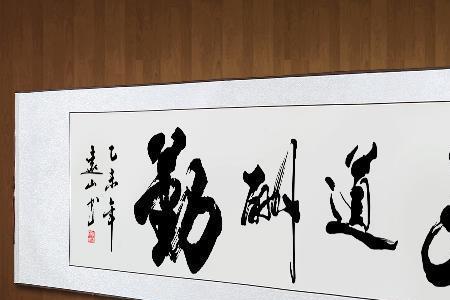 道酬勤
乙未年
遠山书